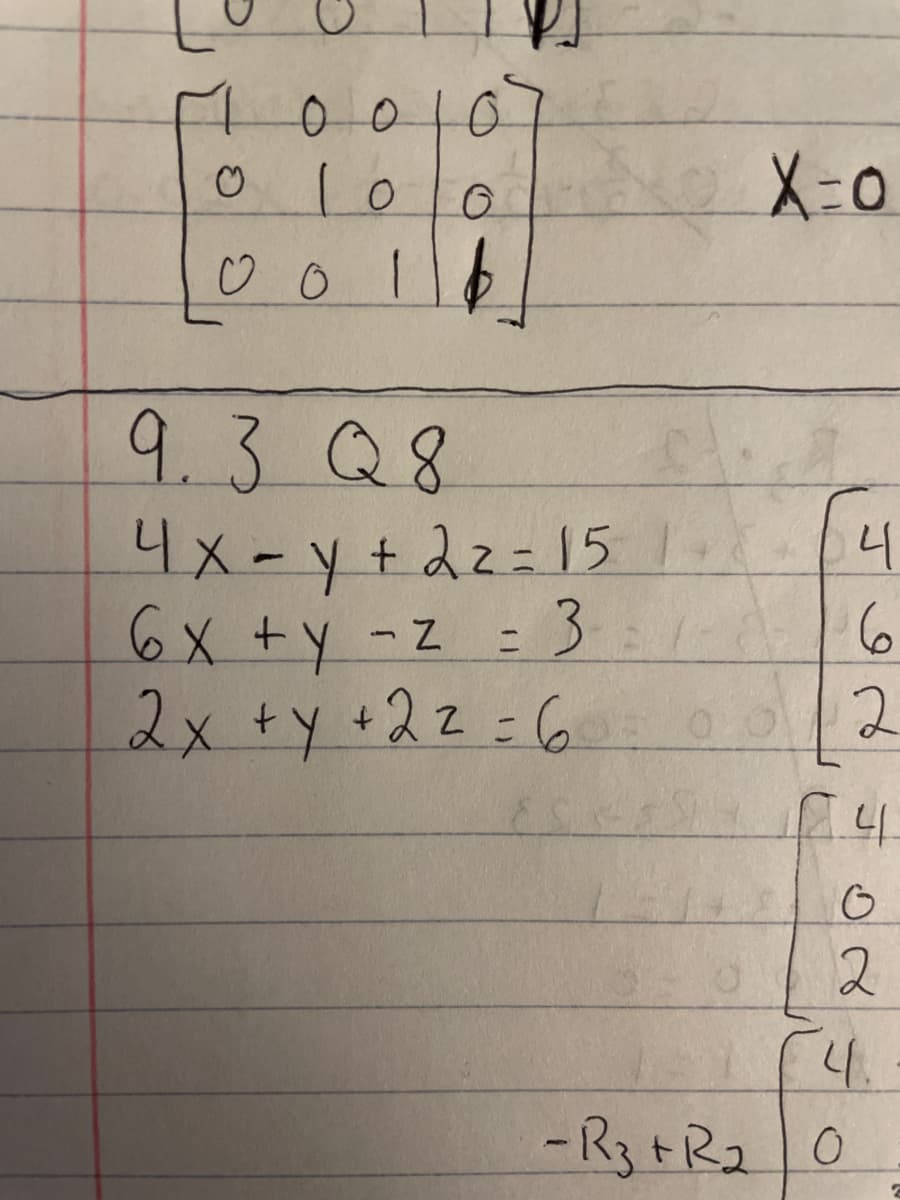 1 0 0 | 0
0 1 0 | 0
0 0 1 |
X=0
9.3 Q8
4x - y + 2z = 15
6x + y - z = 3
2x + y + 2z = 6
4
6
2
4
0
2
4
-R₃ + R₂ 0